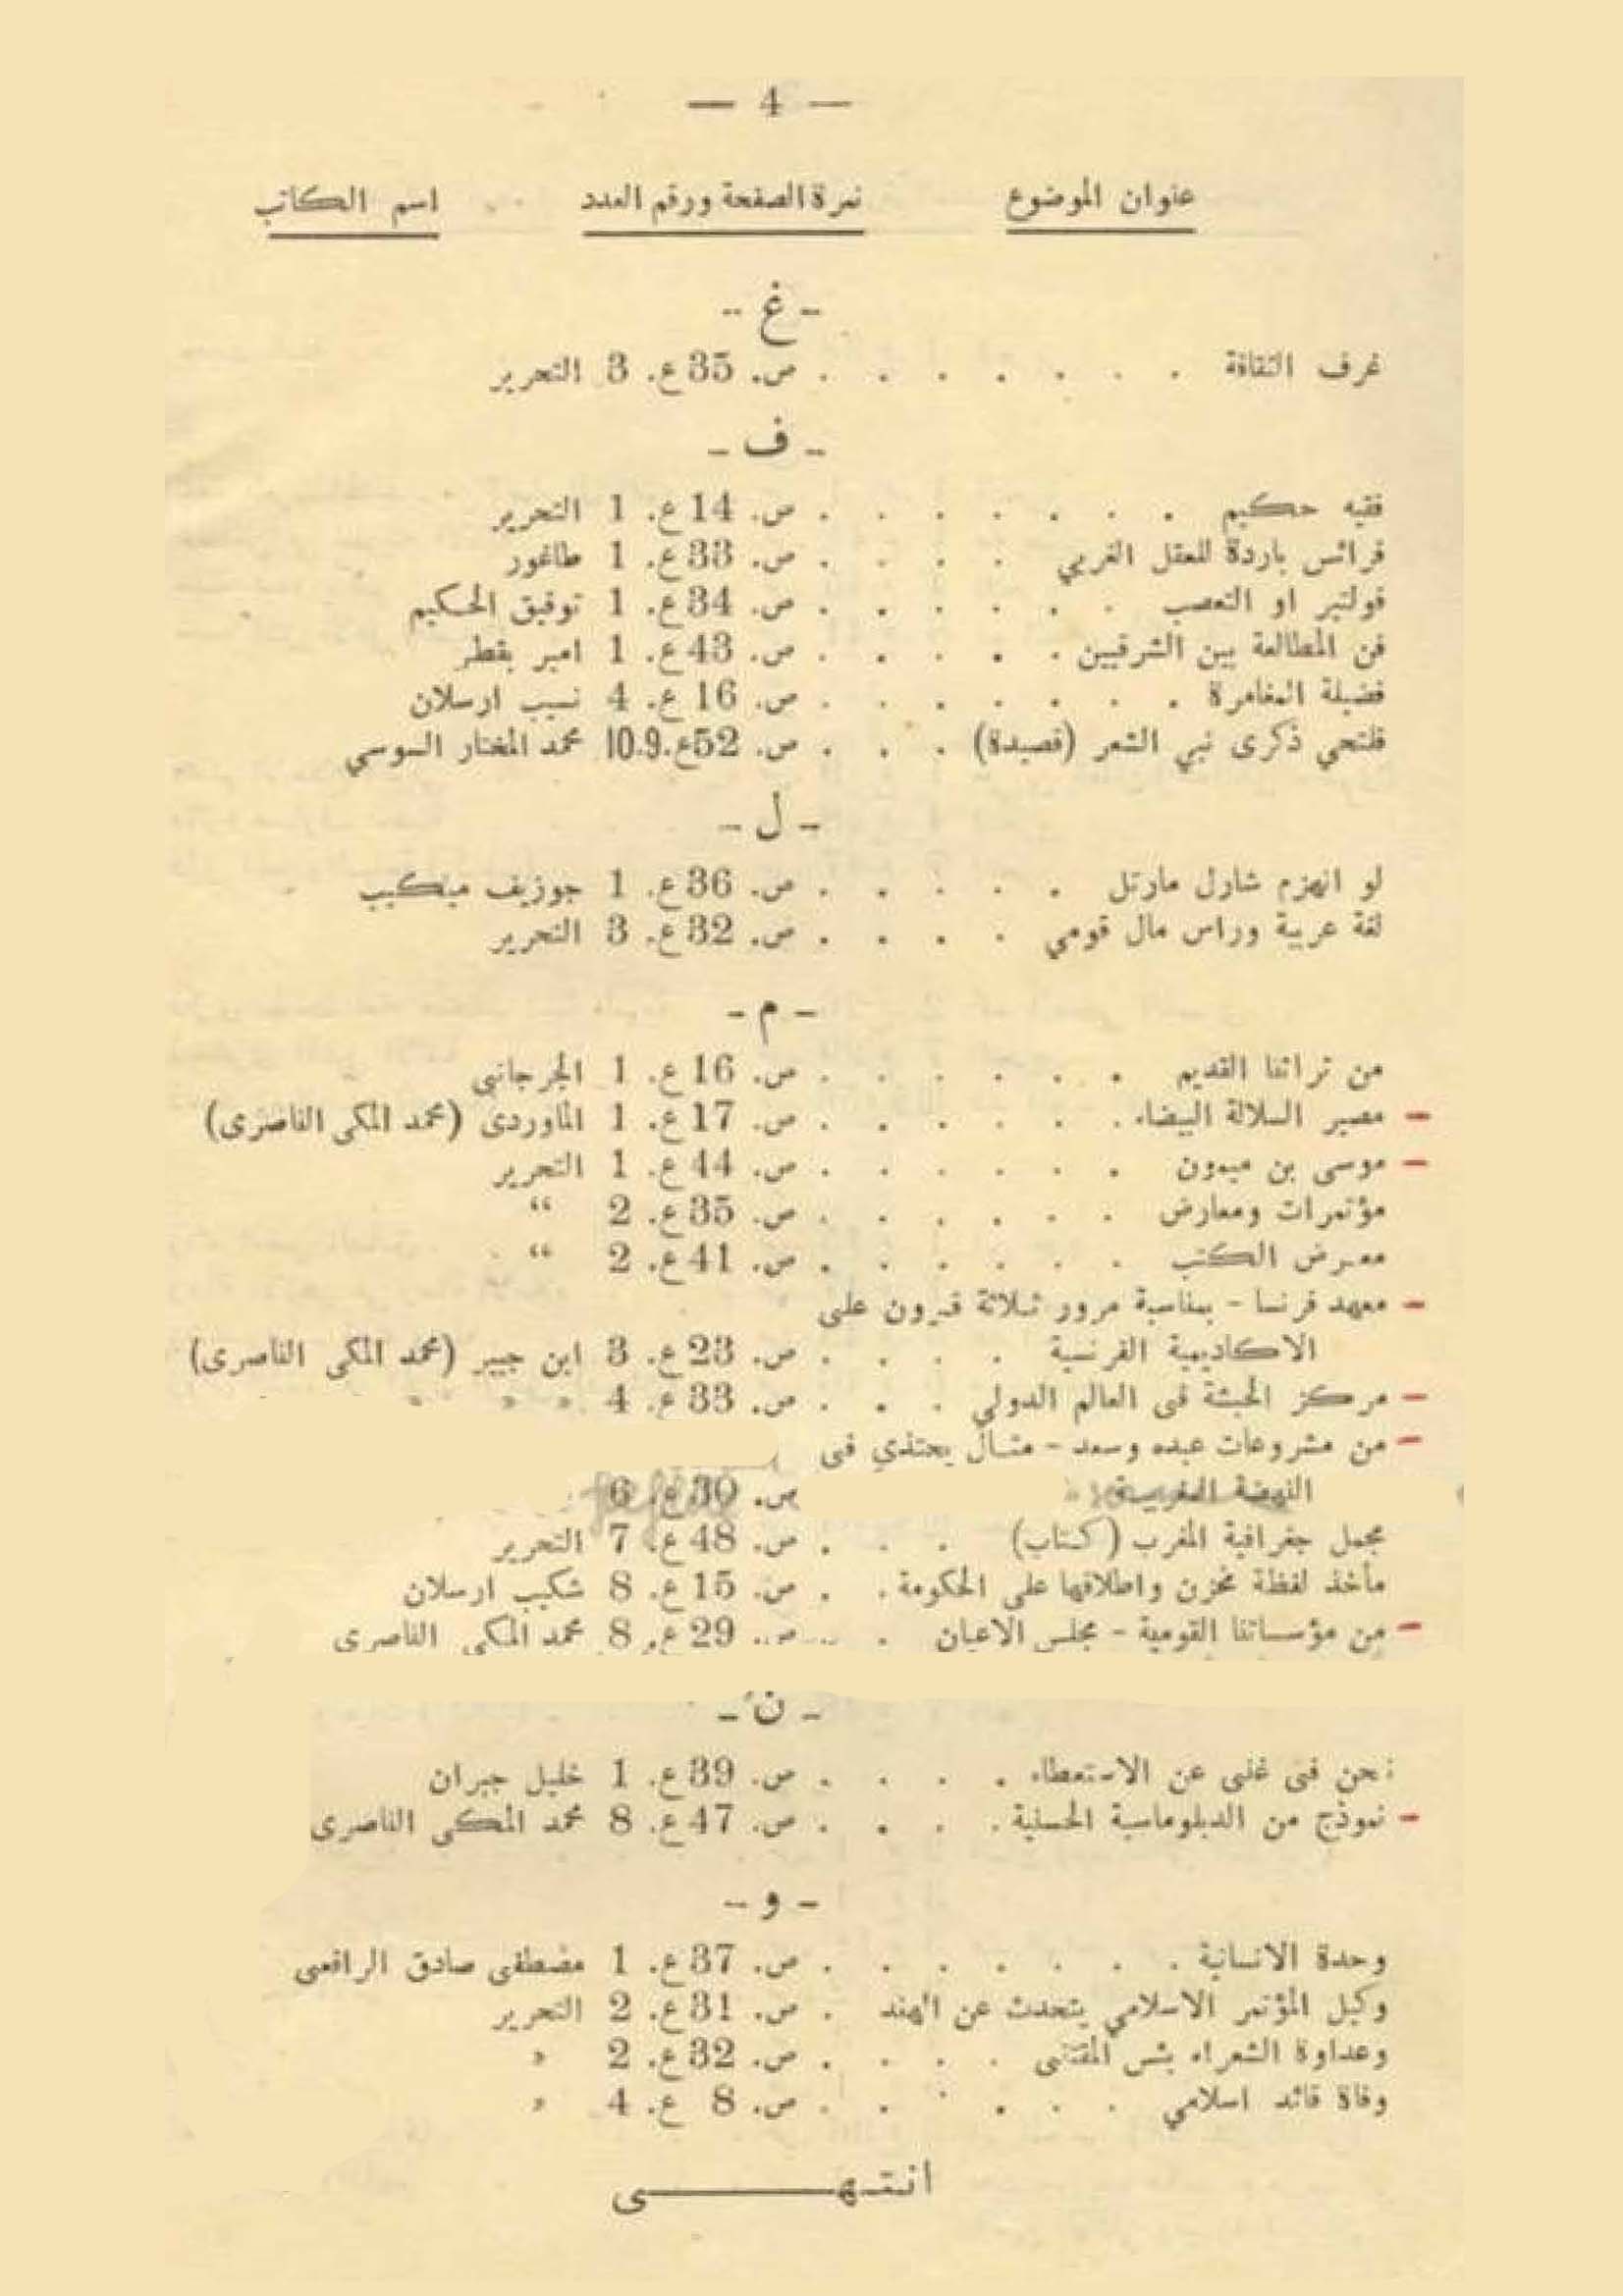 — 4 —
عنوان الموضوع نمرة الصفحة ورقم العدد اسم الكاتب
- غ -
غرف الثقافة . . . . . . . ص. 35 ع. 3 التحرير
- ف -
فقيه حكيم . . . . . . . ص. 14 ع. 1 التحرير
فرائس باردة للعقل الغربي . . . . ص. 33 ع. 1 طاغور
فولتير او التعصب . . . . . . ص. 34 ع. 1 توفيق الحكيم
فن المطالعة بين الشرقيين . . . . . ص. 43 ع. 1 امير بقطر
فضيلة المغامرة . . . . . . . ص. 16 ع. 4 نسيب ارسلان
فلتحي ذكرى نبي الشعر (قصيدة) . . . ص. 52 ع. 10.9 محمد المختار السوسي
- ل -
لو انهزم شارل مارتل . . . . . ص. 36 ع. 1 جوزيف ميكيب
لغة عربية وراس مال قومي . . . . ص. 32 ع. 3 التحرير
- م -
من تراثنا القديم . . . . . . ص. 16 ع. 1 الجرجاني
– مصير السلالة البيضاء . . . . . . ص. 17 ع. 1 الماوردى (محمد المكى الناصرى)
– موسى بن ميمون . . . . . . ص. 44 ع. 1 التحرير
مؤتمرات ومعارض . . . . . . ص. 35 ع. 2 “
معرض الكتب . . . . . . ص. 41 ع. 2 “
– معهد فرنسا - بمناسبة مرور ثلاثة قرون على
الاكاديمية الفرنسية . . . . ص. 23 ع. 3 ابن جبير (محمد المكى الناصرى)
– مركز الحبشة فى العالم الدولي . . . ص. 33 ع. 4 » » » »
– من مشروعات عبده وسعد - مثال يحتذي فى
النهضة المغربية ص. 30 ع. 6
مجمل جغرافية المغرب (كتاب) . . . ص. 48 ع. 7 التحرير
مأخذ لفظة مخزن واطلاقها على الحكومة . . ص. 15 ع. 8 شكيب ارسلان
– من مؤسساتنا القومية - مجلس الاعيان . ص. 29 ع. 8 محمد المكى الناصرى
- ن -
نحن فى غنى عن الاستعطاء . . . . ص. 39 ع. 1 خليل جبران
– نموذج من الدبلوماسية الحسنية . . . . ص. 47 ع. 8 محمد المكى الناصرى
- و -
وحدة الانسانية . . . . . . . ص. 37 ع. 1 مصطفى صادق الرافعى
وكيل المؤتمر الاسلامي يتحدث عن الهند . ص. 31 ع. 2 التحرير
وعداوة الشعراء بئس المقتنى . . . . ص. 32 ع. 2 »
وفاة قائد اسلامي . . . . . . ص. 8 ع. 4 »
انتهى